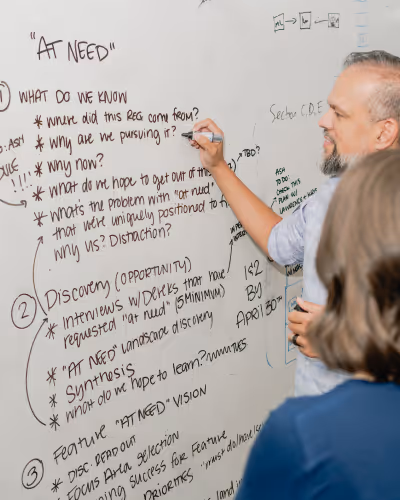 "AT NEED"
Section C, D, E
1 WHAT DO WE KNOW
* where did this REG come from?
* why are we pursuing it?
* why now?
* what do we hope to get out of this
→ TBD?
* what's the problem with "at need"
that we're uniquely positioned to
why us? Distraction?
!!!
ASH
TO DO:
CHECK THIS
2 Discovery (OPPORTUNITY)
* Interviews w/ Dereks that have
requested "at need" (5 MINIMUM)
1&2
BY
APRIL 30TH
* "AT NEED" landscape discovery
* Synthesis
* what do we hope to learn?
3 Feature "AT NEED" VISION
* DISC. READ OUT
* Focus Area selection
success for Feature
PRIORITIES